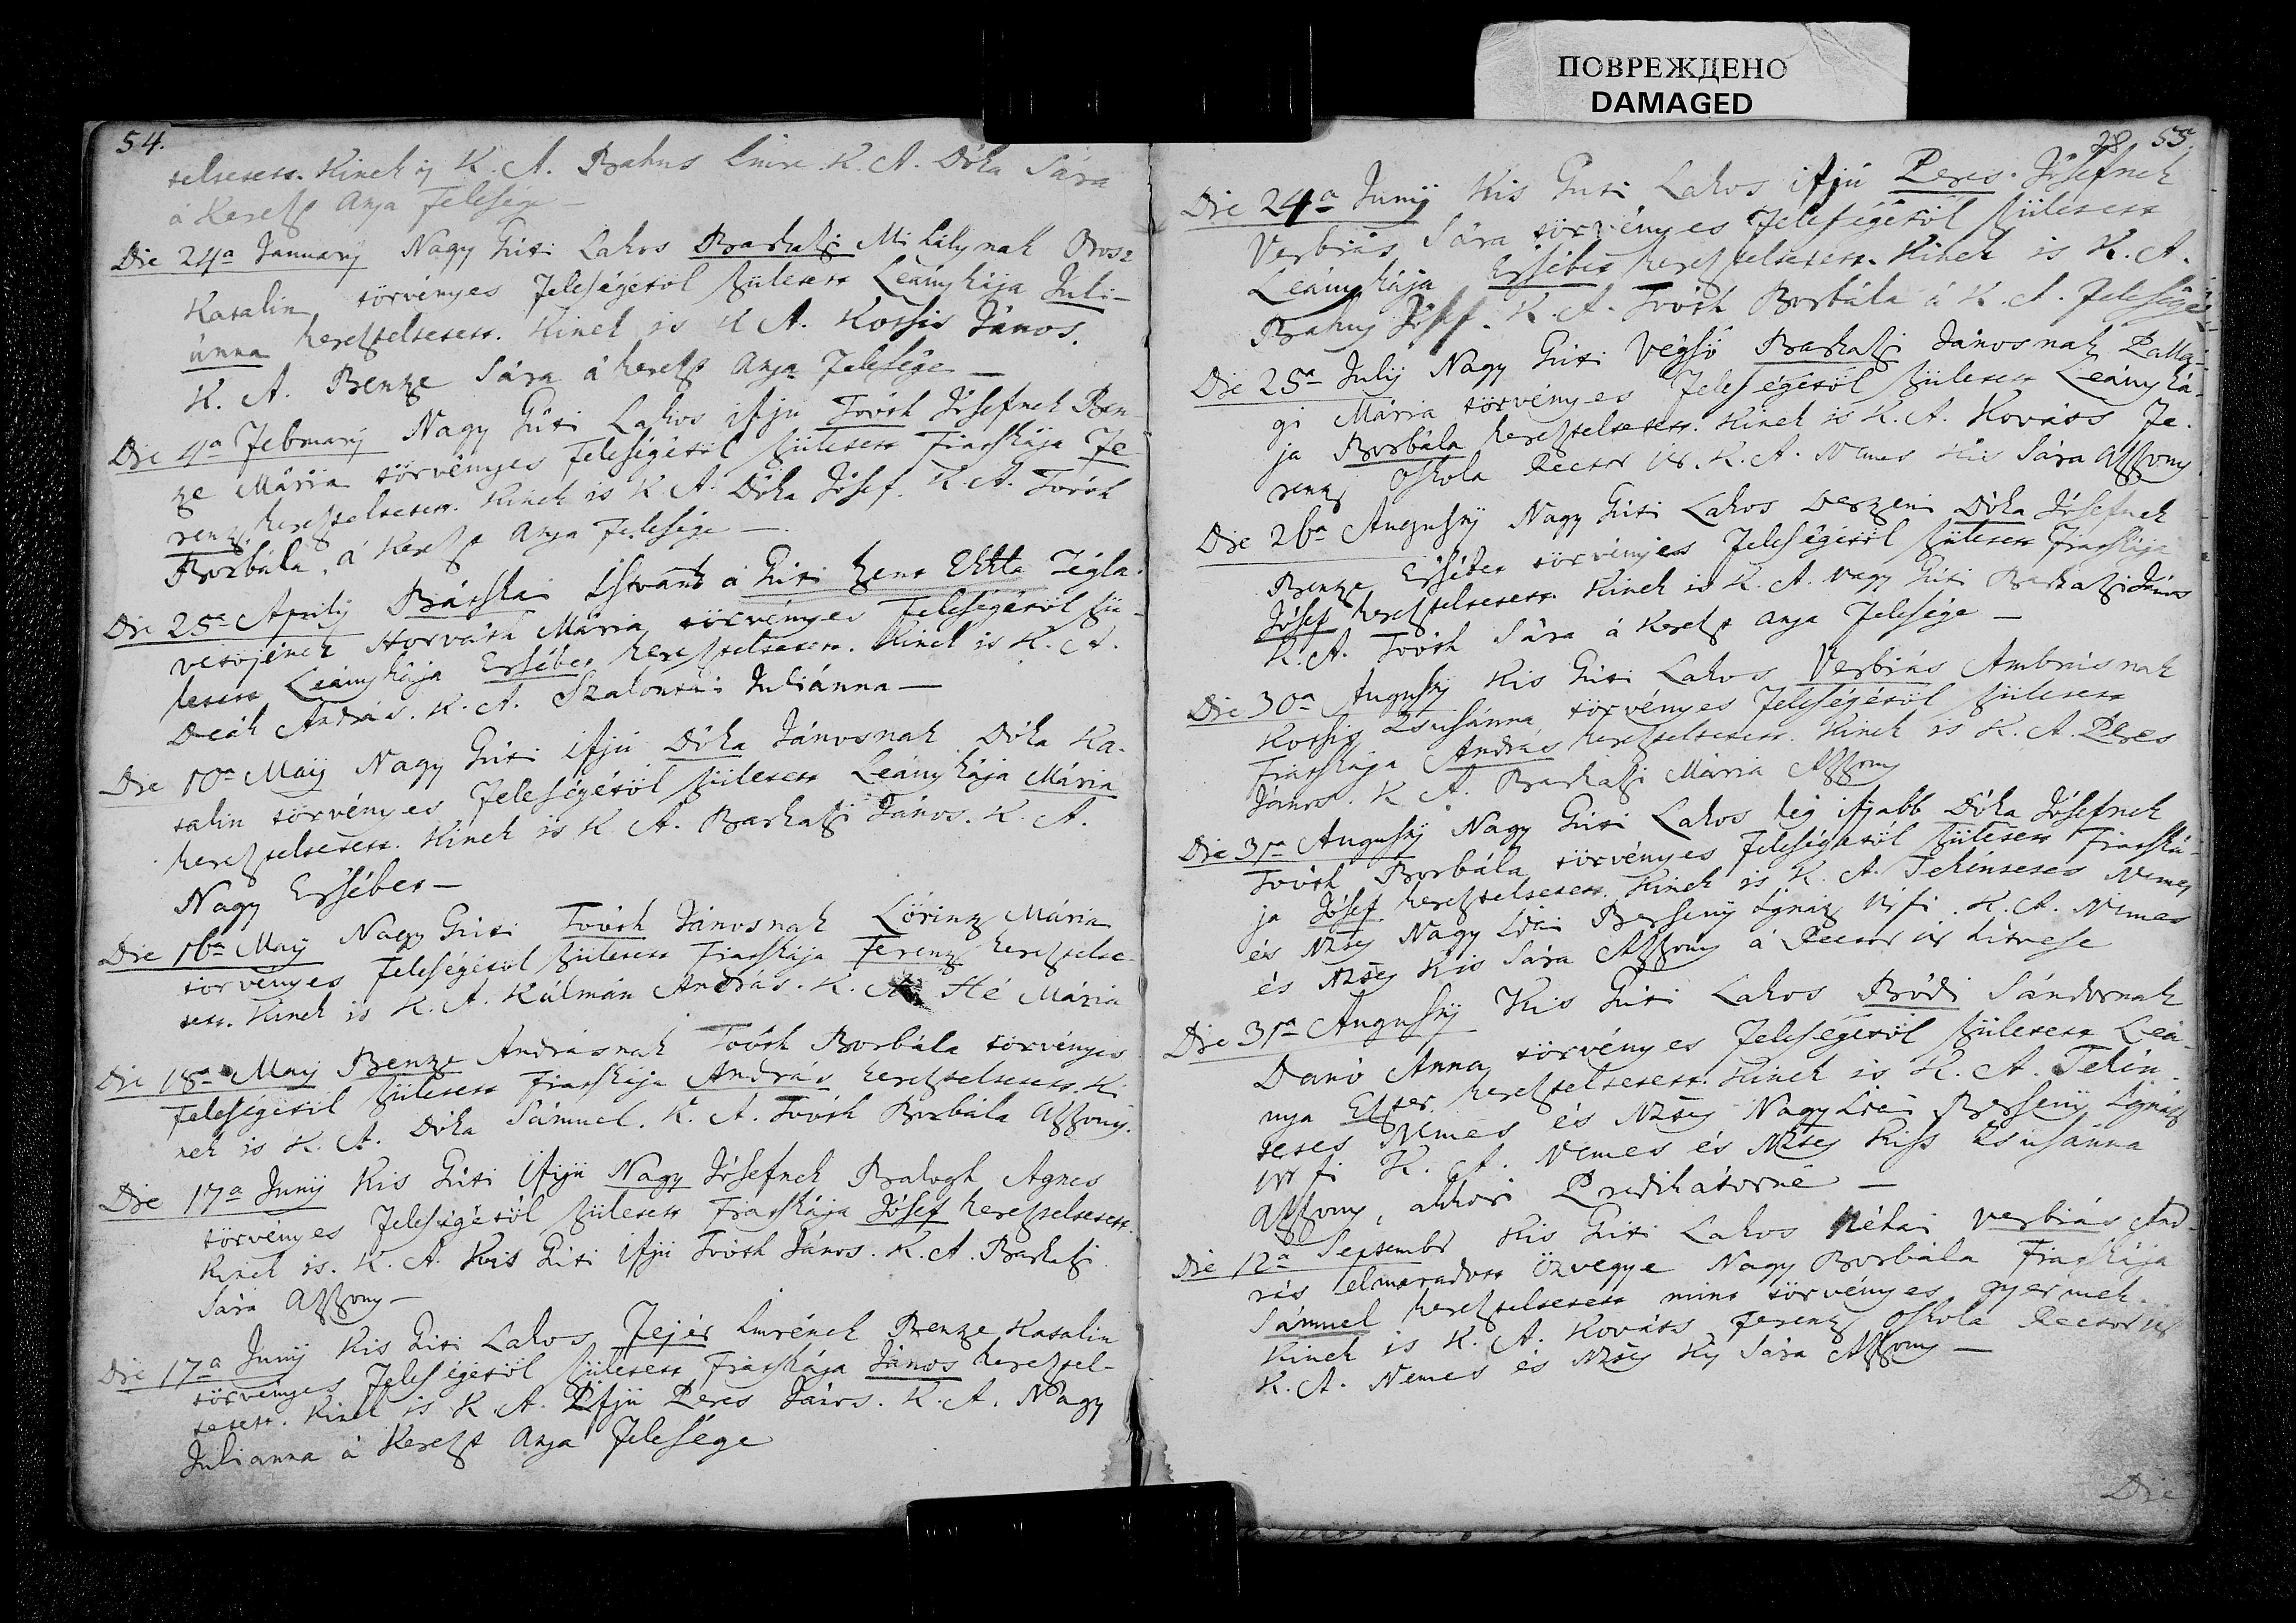 ПОВРЕЖДЕНО
DAMAGED
54.
teltetett. Kinek is K. A. Bakus Imre. K. A. Dóka Sára
á Kereszt Anya Felesége —
Die 24a Januarij Nagy Guti Lakos Barkatzi Mihálynak Orosz
Katalin törvényes Feleségétöl született Leánykája Juli-
ánna kereszteltetett. Kinek is K A. Kotsis János.
K. A. Bentze Sára á kereszt Anya Felesége —
Die 4a Februarij Nagy Guti Lakos ifju Tóóth Jósefnek Ben-
tze Mária törvényes Feleségétöl született Fiatskája Fe
rentz kereszteltetett. Kinek is K A. Dóka Jósef. K. A. Tóóth
Borbála, á Kereszt Anya Felesége —
Die 25a Aprilij Bátskai Istvánnak á Guti Tégla
vetöjének Horváth Mária törvényes Feleségétöl szü-
letett Leánykája Ersébet kereszteltetett. Kinek is K. A.
Deák András. K. A. Szalontai Juliánna —
Die 10a Maij Nagy Guti ifjú Dóka Jánosnak Dóka Ka-
talin törvényes Feleségétöl született Leánykája Mária
kereszteltetett. Kinek is K A. Barkatzi János. K. A.
Nagy Ersébet —
Die 16a Maij Nagy Guti Tóóth Jánosnak Lörintz Mária
törvényes Feleségétöl született Fiatskája Ferentz keresztelte-
tett. Kinek is K. A. Kálmán András. K. A. Hé Mária
Die 18a Maij Bentze Andrásnak Tóóth Borbála törvényes
Feleségétöl született Fiatskája András kereszteltetett. Ki
nek is K. A. Dóka Sámuel. K. A. Tóóth Borbála Aszszony.
Die 17a Junij Kis Guti ifijú Nagy Jósefnek Balogh Agnes
törvényes Feleségétöl született Fiatskája Jósef kereszteltetett.
Kinek is. K. A. Kis Guti ifjú Tóóth János. K. A. Barkatzi
Sára Aszszony —
Die 17a Junij Kis Guti Lakos Fejér Imrének Bentze Katalin
törvényes Feleségétöl született Fiatskája János keresztel-
tetett. Kinek is K. A. Ifjú Peres János. K. A. Nagy
Julianna á Kereszt Anya Felesége
28 55.
Die 24a Junij Kis Guti Lakos ifjú Peres Jósefnek
Verbiás Sára törvényes Feleségétöl született
Leánykája Ersébet kereszteltetett. Kinek is K. A.
Bakus Jósef. K. A. Tóóth Borbála á K. A. Felesége
Die 25a Julij Nagy Guti Végsö Barkatzi Jánosnak Palla-
gi Mária törvényes Feleségétöl született Leányká-
ja Borbála kereszteltetett. Kinek is K. A. Kováts Fe-
rentz Oskola Rector Ur. K. A. Nemes Kis Sára Aszszony
Die 26a Augustij Nagy Guti Lakos Dóka Jósefnek
Bentze Ersébet törvényes Feleségétöl született Fiatskája
Jósef kereszteltetett Kinek is K. A. Nagy Guti Barkatzi János
K. A. Tóóth Sára á Kereszt Anya Felesége —
Die 30a Augustij Kis Guti Lakos Verbiás Ambrusnak
Kotsis Zsusánna törvényes Feleségétöl született
Fiatskája András kereszteltetett. Kinek is K. A. Peres
János. K A. Barkatzi Mária Aszszony
Die 31a Augustij Nagy Guti Lakos leg ifjabb Dóka Jósefnek
Tóóth Borbála törvényes Feleségétöl született Fiatská-
ja Jósef kereszteltetett. Kinek is K. A. Tekintetes Nemes
és Ntzes Nagy Létai Bersenyi Ignátz Urfi. K. A. Nemes
és Ntzes Kis Sára Aszszony á Rector Ur hitvese
Die 31a Augustij Kis Guti Lakos Bódi Sándornak
Danó Anna törvényes Feleségétöl született Leá-
nya Eszter kereszteltetett. Kinek is K. A. Tekin-
tetes Nemes és Ntzes Nagy Létai Bersenyi Ignátz
Urfi K. A. Nemes és Ntzes Kiss Zsusánna
Aszszony, akkori Predikátorné —
Die 12a Septembr Kis Guti Lakos Néhai Verbiás And-
rás elmaradott özvegye Nagy Borbála Fiatskája
Sámuel kereszteltetett mint törvényes gyermek.
Kinek is K. A. Kováts Ferentz Oskola Rector Ur
K. A. Nemes és Ntzes Kis Sára Aszszony —
Die